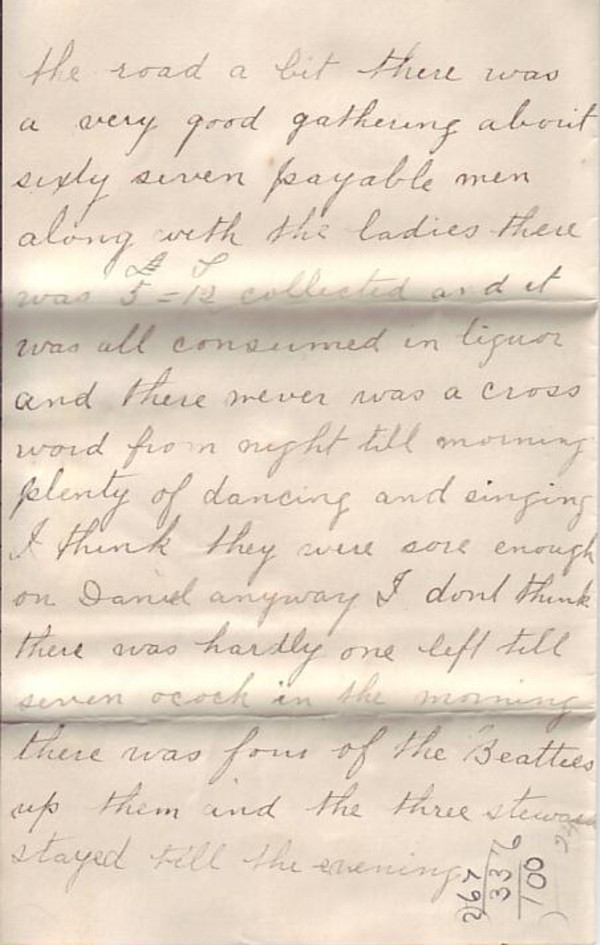 the road a bit there was
a very good gathering about
sixty seven payable men
along with the ladies there
£ S
was 5 = 12 collected and it
was all consumed in liquor
and there never was a cross
word from night till morning
plenty of dancing and singing
I think they were sore enough
on Daniel anyway I dont think
there was hardly one left till
seven ocock in the morning
there was four of the Beatties
up them and the three
stayed till the evening
267
33
100